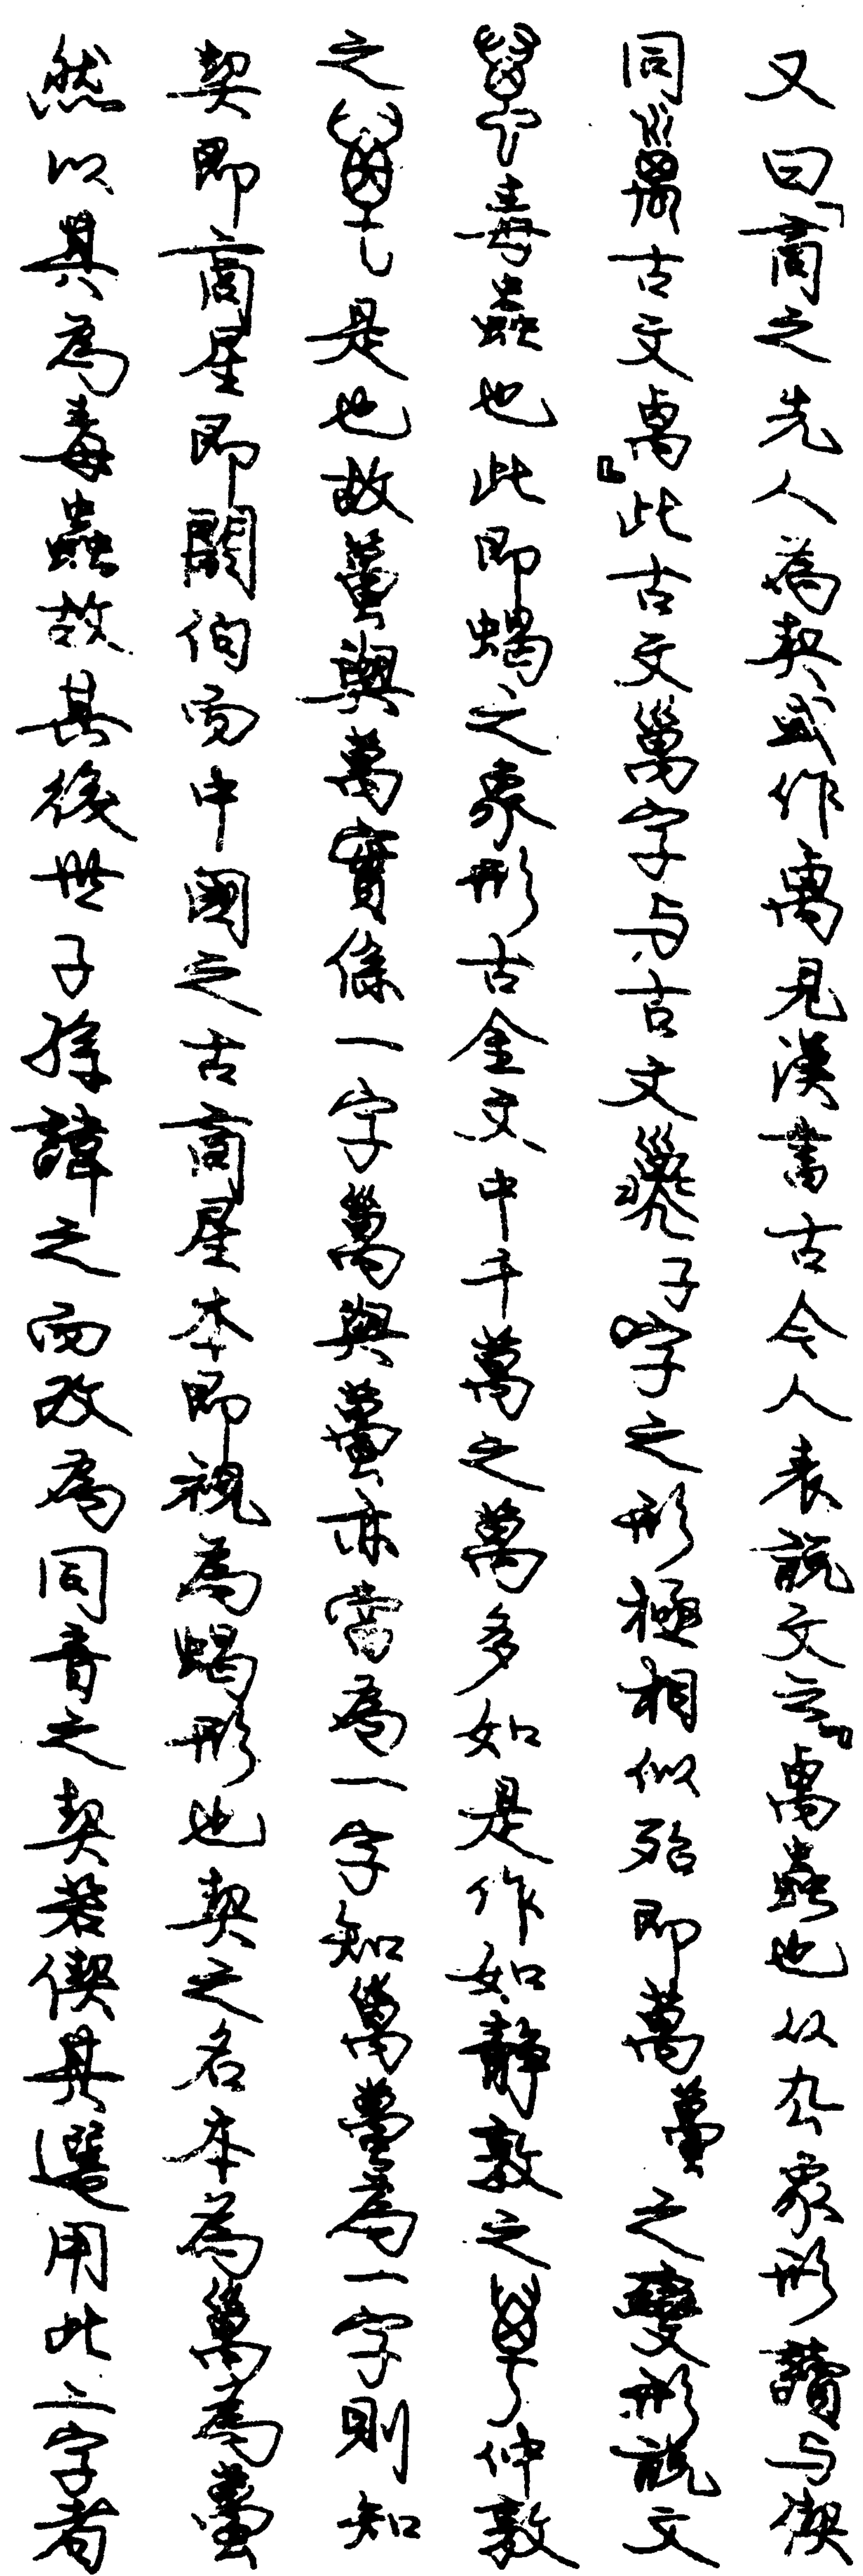 又曰「商之先人為契或作禼見漢書古今人表說文云『禼蟲也从厹象形讀与偰
同𥜿古文禼』此古文𥜿字与古文字之形極相似殆即萬蠆之變形說文
毒蟲也此即蝎之象形古金文中千萬之萬多如是作如靜敦之仲敦
之是也故蠆與萬實係一字與蠆亦當為一字知蠆為一字則知
契即商星即閼伯而中國之古商星本即視為蝎形也契之名本為為蠆
然以其為毒蟲故其後世子孫諱之而改為同音之契若偰其選用此二字者